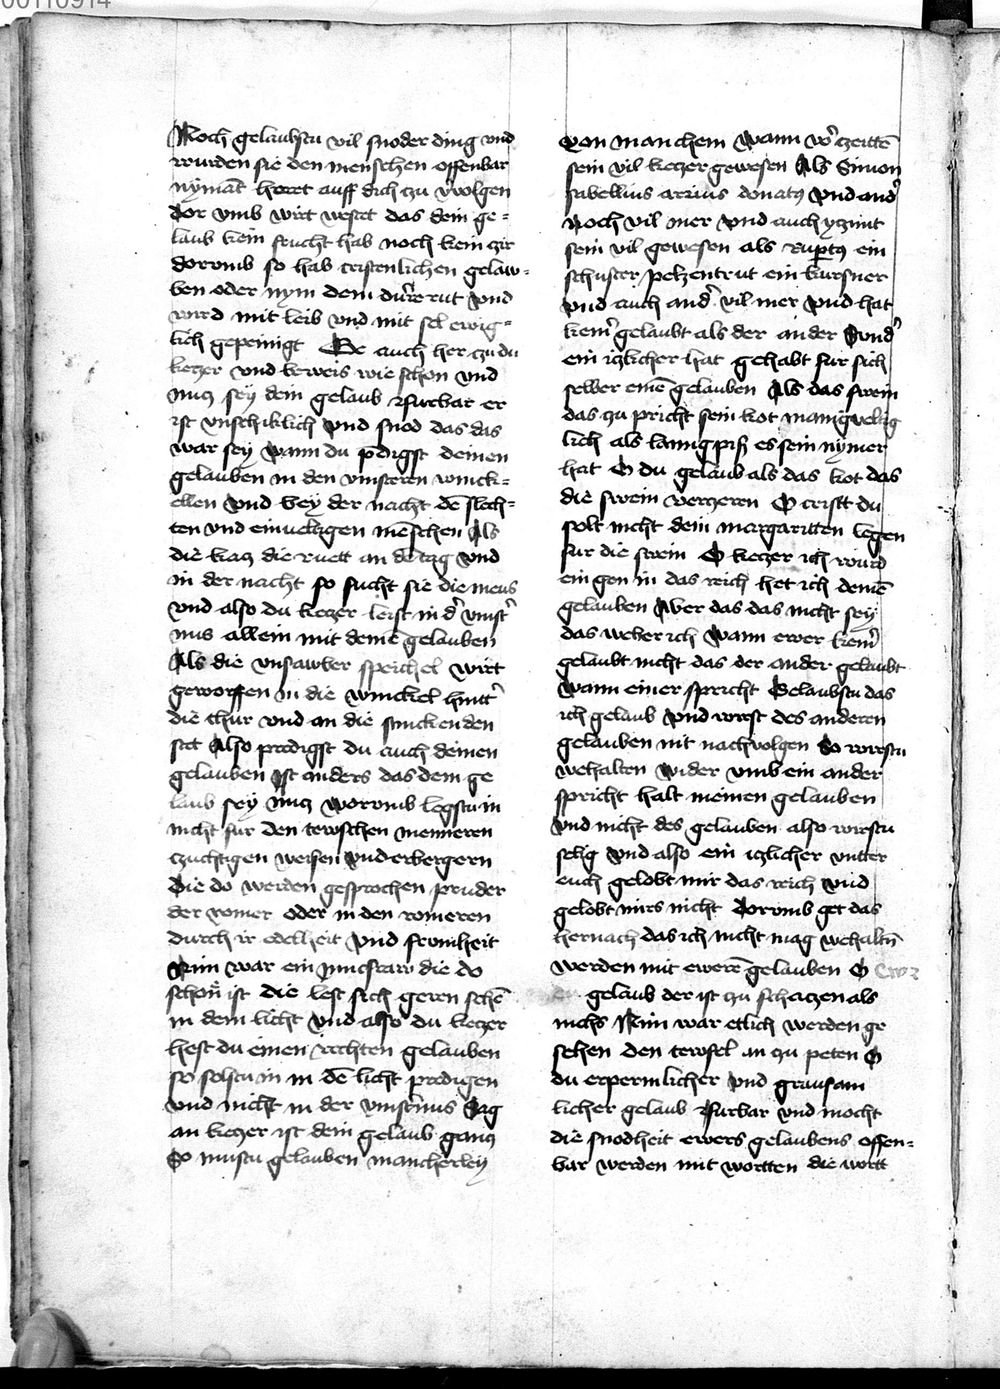 00110914
Noch gelaubstu vil snoder ding vnd
wurden sie den menschen offenbar
nymāt horet auff dich zu volgen
Dor vmb wirt westet das dein ge=
laub kein frucht hab noch kein zir
dorvmb so hab cristenlichen gelaw=
ben oder nym dem durre rut vnd
wird mit leib vnd mit sel ewig=
lich gepeinigt Ge auch her zu du
ketzer vnd beweis wie schon vnd
nucz sey dein gelaub fürbar er
ist vnschiklich vnd snod das das
war sey wann du p̄digst deinen
gelauben in den vinsteren winck=
ellen vnd bey der nacht dē slech=
ten vnd einueltigen mēschen Als
die katz die ruett an dē tag vnd
in der nacht so sucht sie die meus
vnd also du ketzer lerst in d' vinst'
nus allein mit deinē gelauben
Als die vnsawber speichel wirt
geworffen in die winckel hintt'
die thur vnd an die stinckenden
stet Also predigst du auch deinen
gelauben Ist anders das dein ge
laub sey nucz worvmb legstu in
nicht fur den tewschen menneren
czuchtigen weisen vnd erbergern
Die do werden gesprochen pruder
der romer oder in den romeren
durch ir edelheit vnd fromheit
Nim war ein junckfraw die do
schon ist die lest sich geren sehē
in dem licht vnd also du ketzer
hest du einen rechten gelauben
so solstu in in dē licht predigen
vnd nicht in der vinst'nus Sag
an ketzer ist dein gelaub gancz
So mustu gelauben mancherley
von manchem wann vor czeittē
sein vil ketzer gewesen Als Simon
sabellius arrius donatus vnd and'
Noch vil mer vnd auch yczunt
sein vil gewesen als rupertus ein
schuster pelzentrut ein kursner
vnd auch and' vil mer vnd hat
kein' gelaubt als der ander Sund'
ein itzlicher hat gehabt fur sich
selber einē gelauben Als das swein
das zu pricht sein kot manigueltig
lich als lannig piß es sein nymer
hat O du gelaub als das kot das
die swein verzeren O cristt du
solt nicht dein margaritten legen
fur die swein O ketzer ich wurd
ein gen in das reich het ich deinē
gelauben Aber das das nicht sey
das weber ich wann ewer kein'
gelaubt nicht das der ander gelaubt
wann einer spricht Gelaubstu das
ich gelaub vnd wirst des anderen
gelauben nit nachvolgen So wirstu
wehalten wider vmb ein ander
spricht halt meinen gelauben
vnd nicht des gelauben also wirstu
selig vnd also ein itzlicher vnter
euch gelobt mir das reich vnd
gelobt mirs nicht Dorvmb get das
hernach das ich nicht mag wehaltn
werden mit ewerē gelauben O
gelaub der ist zu schaczen als
nichs Nim war etlich werden ge
sehen den tewfel an zu peten O
du erpermlicher vnd grausam
licher gelaub fürbar vnd mocht
die snodheit ewers gelaubens offen=
bar werden mit wortten die wort